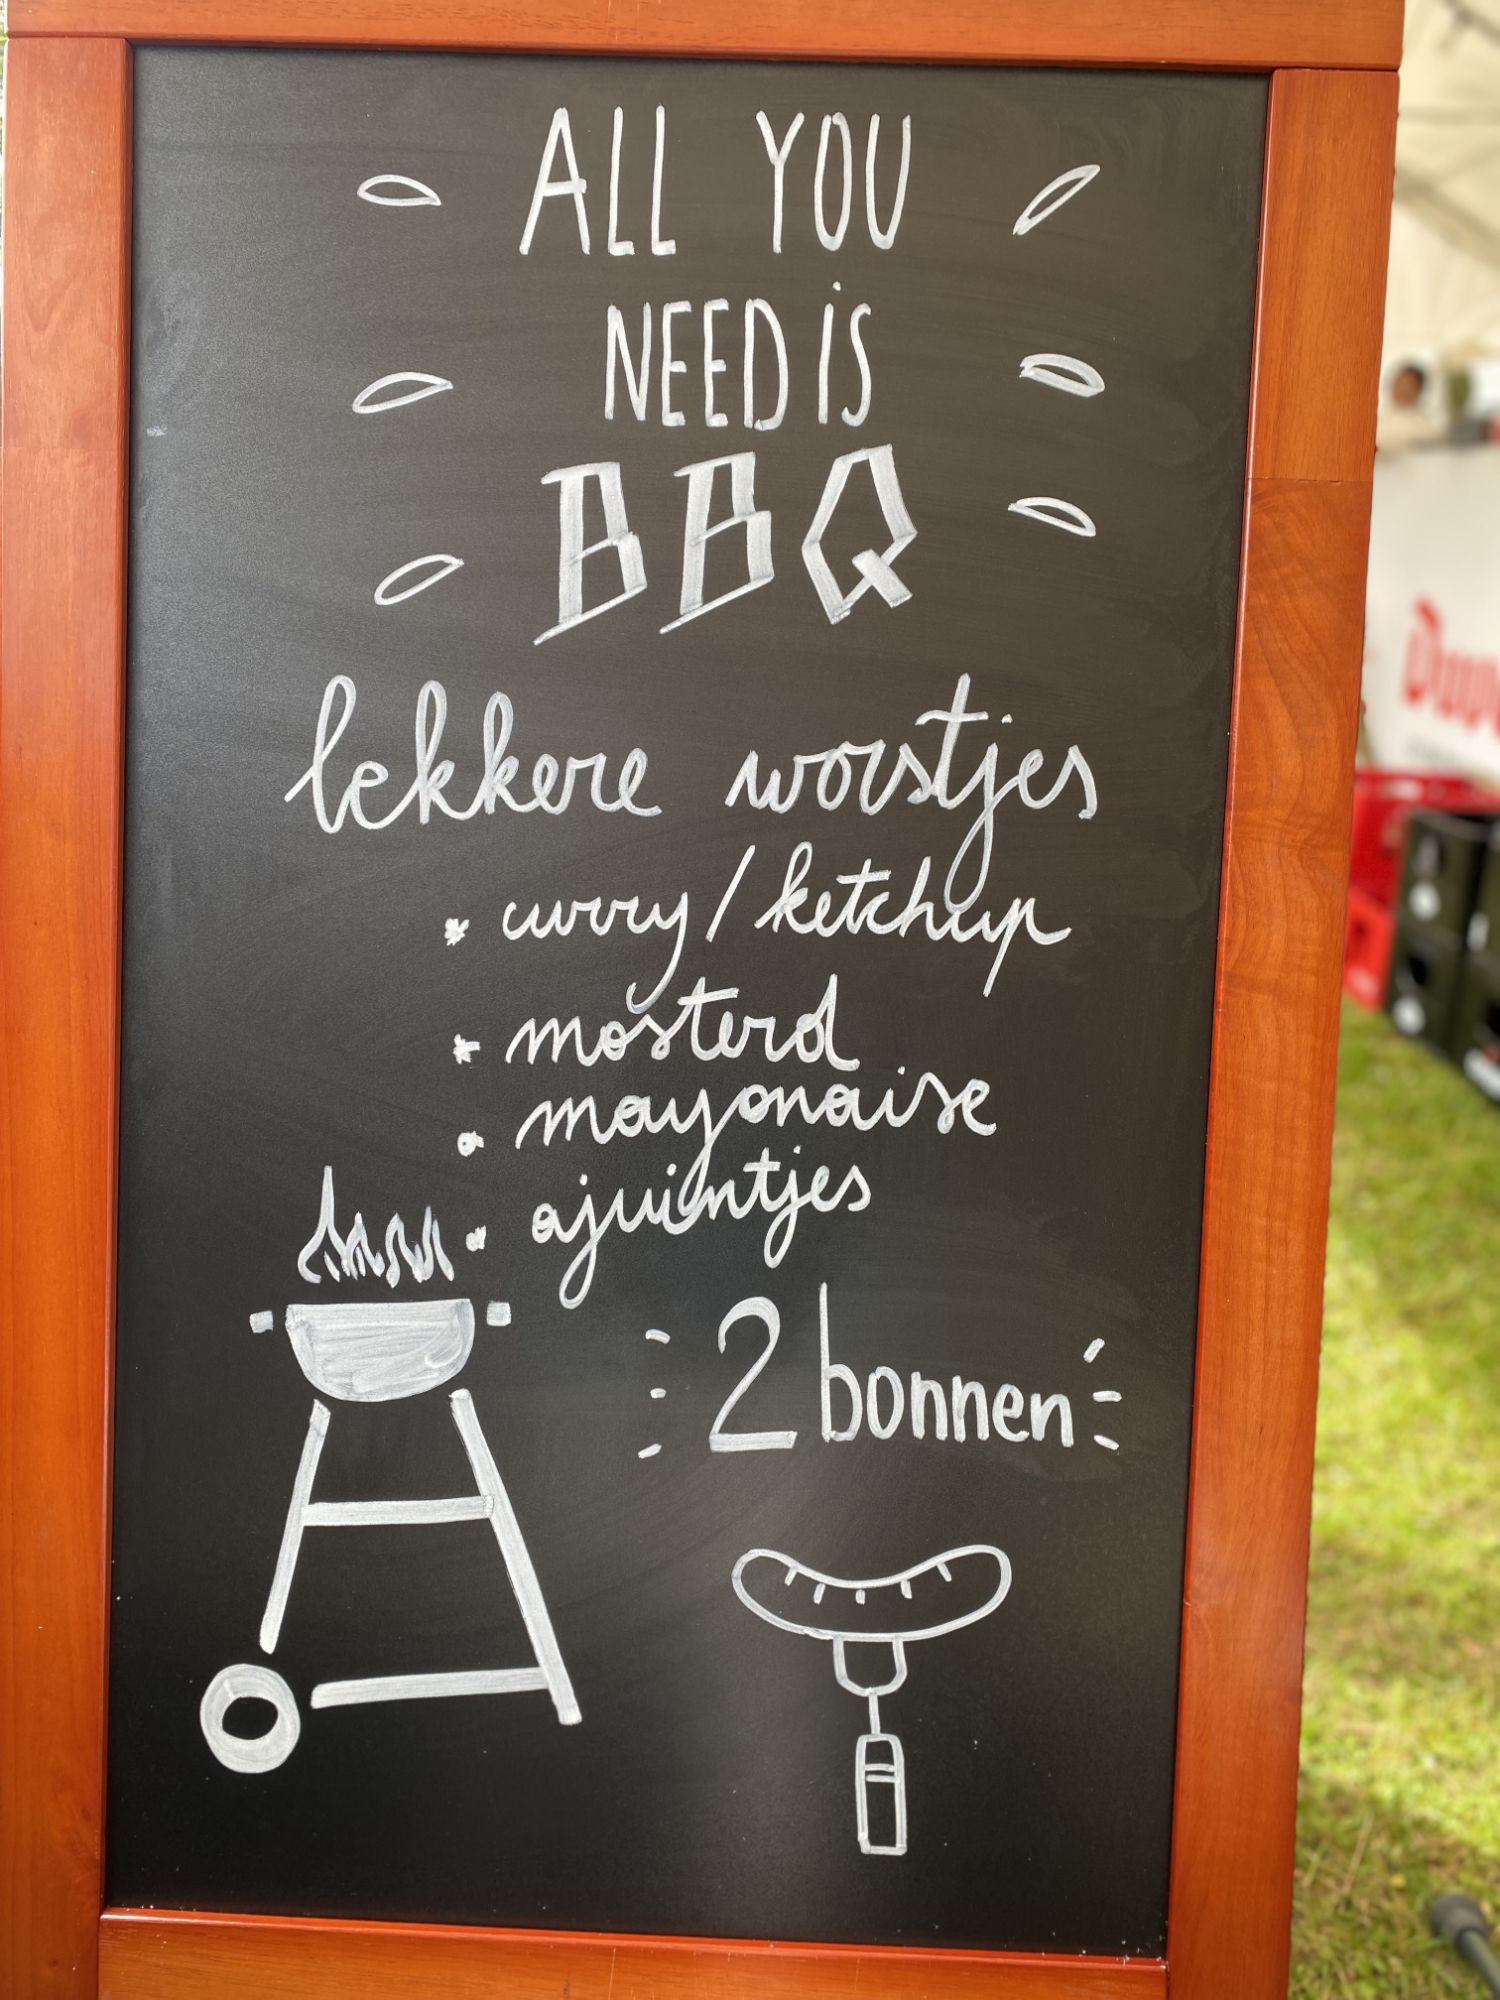 ALL YOU
NEED iS
BBQ
lekkere worstjes
* curry/ketchup
* mosterd
* mayonaise
* ajuintjes
2 bonnen